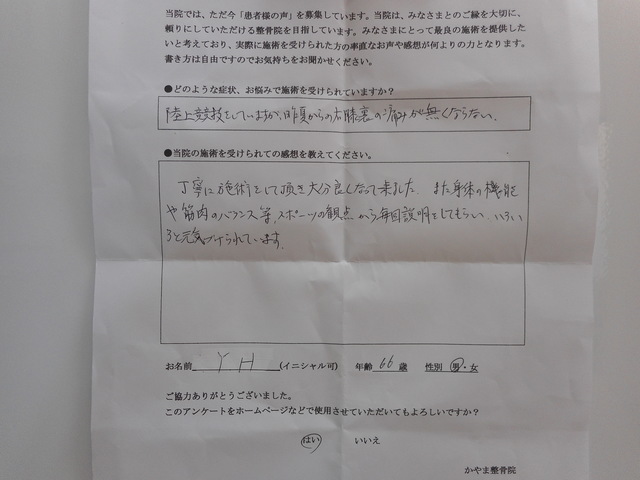 当院では、ただ今「患者様の声」を募集しています。当院は、みなさまとのご縁を大切に、
頼りにしていただける整骨院を目指しています。みなさまにとって最良の施術を提供した
いと考えており、実際に施術を受けられた方の率直なお声や感想が何よりの力となります。
書き方は自由ですのでお気持ちをお聞かせください。
●どのような症状、お悩みで施術を受けられていますか？
陸上競技をしていますが、昨夏からの右膝裏の痛みが無くならない。
●当院の施術を受けられての感想を教えてください。
丁寧に施術をして頂き大分良くなって来ました。また身体の機能
や筋肉のバランス等、スポーツの観点から毎回説明をしてもらい、いろい
ろと元気づけられています。
お名前 YH (イニシャル可) 年齢 66 歳 性別 男・女
ご協力ありがとうございました。
このアンケートをホームページなどで使用させていただいてもよろしいですか？
はい いいえ
かやま整骨院